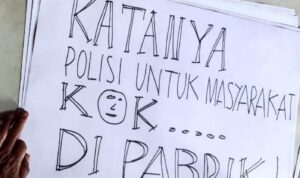 KATANYA
POLISI UNTUK MASYARAKAT
KOK.....
DI PABRIK!